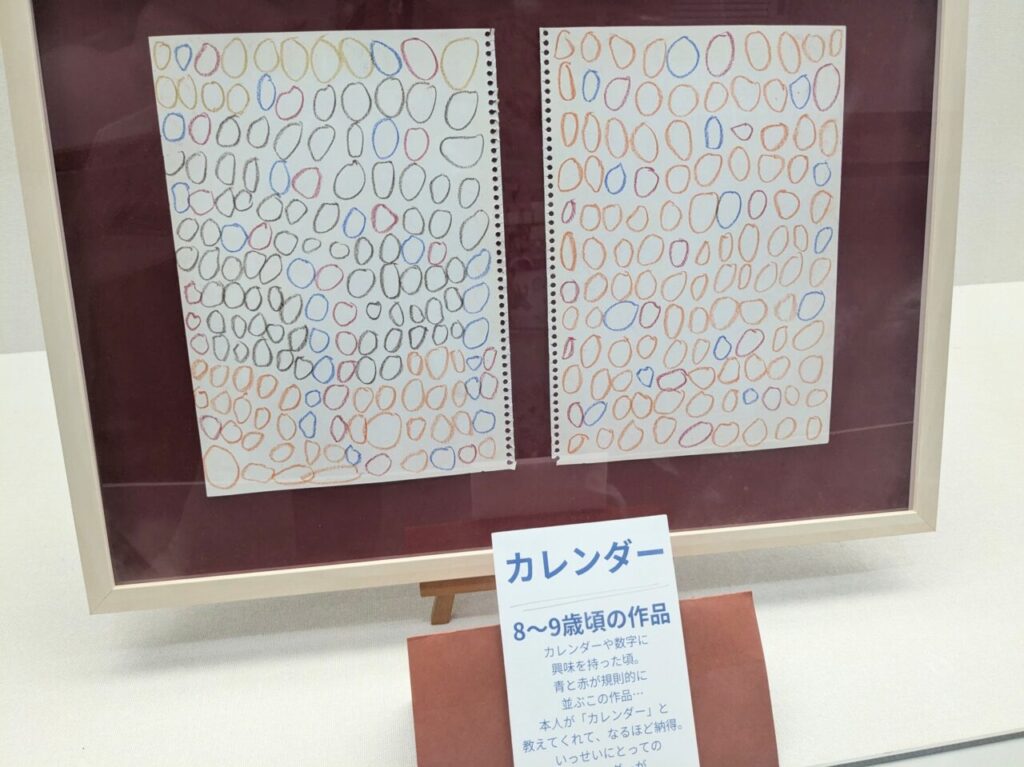 カレンダー
8〜9歳頃の作品
カレンダーや数字に
興味を持った頃。
青と赤が規則的に
並ぶこの作品…
本人が「カレンダー」と
教えてくれて、なるほど納得。
いっせいにとっての